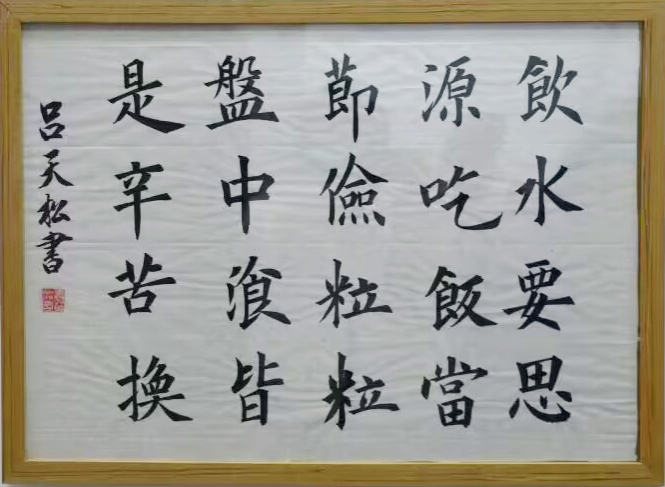 飲水要思
源吃飯當
節儉粒粒
盤中飡皆
是辛苦換
呂天松書